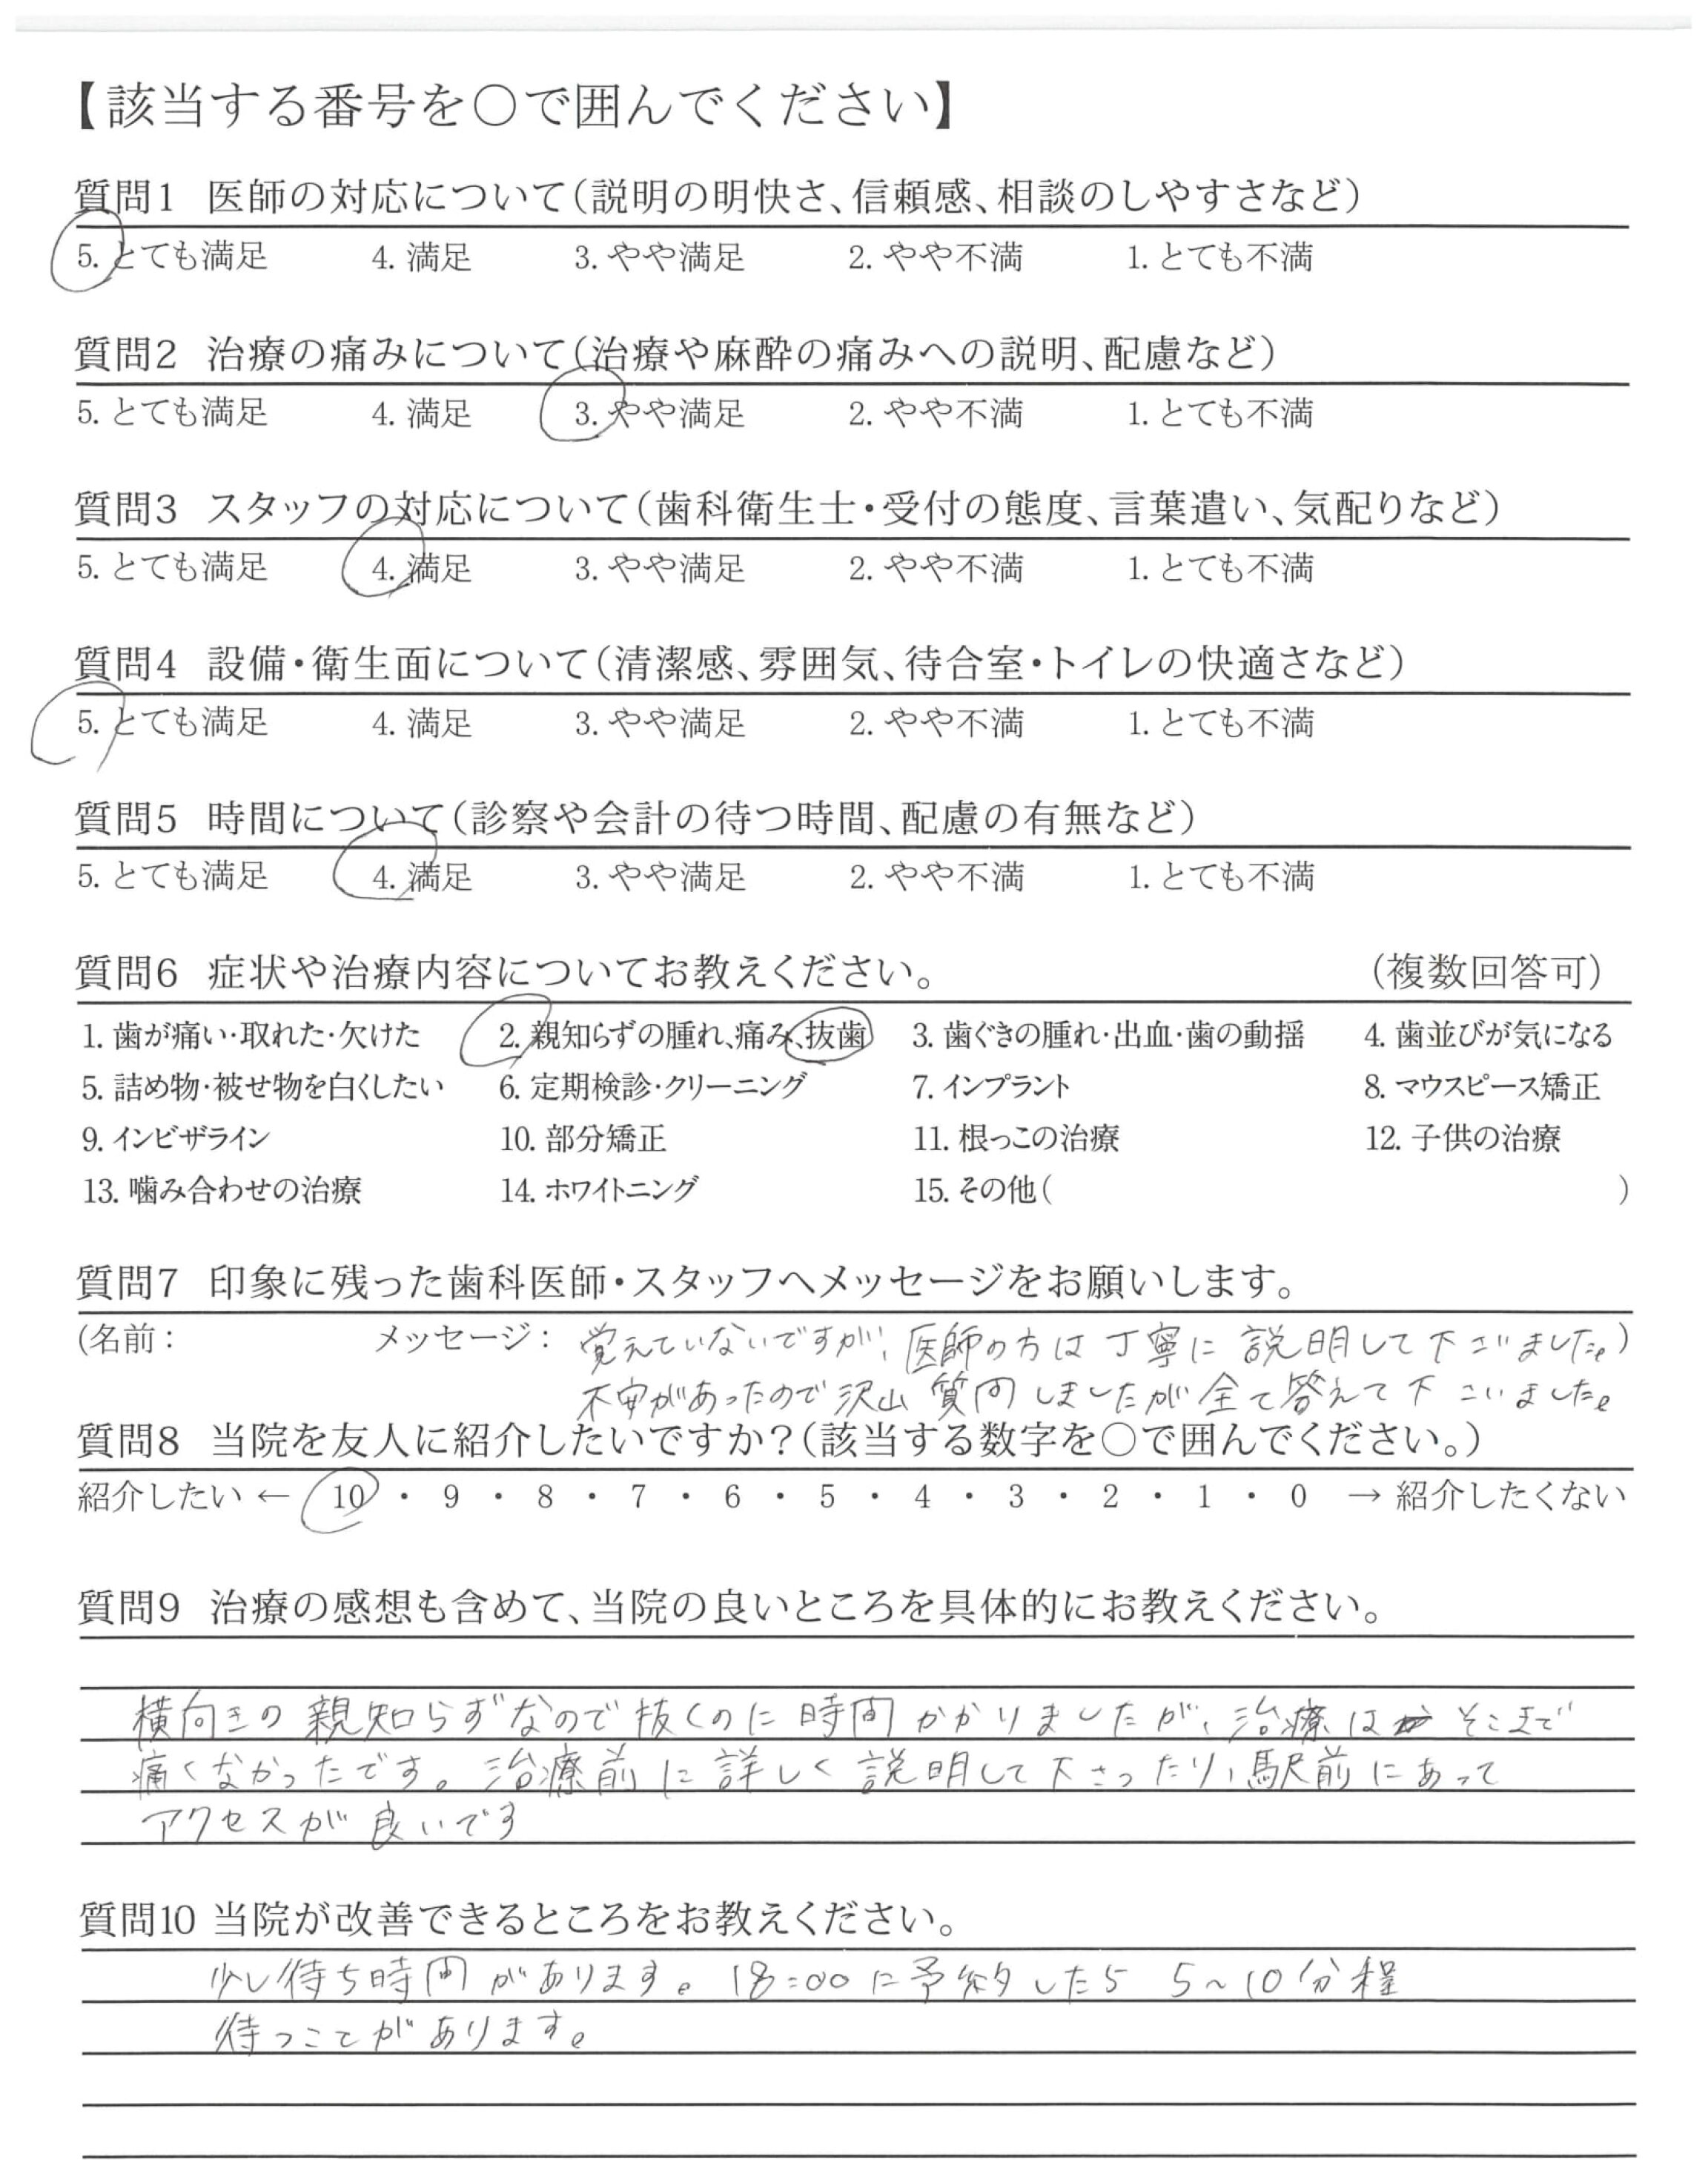 【該当する番号を○で囲んでください】
質問1 医師の対応について(説明の明快さ、信頼感、相談のしやすさなど)
5. とても満足 4. 満足 3. やや満足 2. やや不満 1. とても不満
質問2 治療の痛みについて(治療や麻酔の痛みへの説明、配慮など)
5. とても満足 4. 満足 3. やや満足 2. やや不満 1. とても不満
質問3 スタッフの対応について(歯科衛生士・受付の態度、言葉遣い、気配りなど)
5. とても満足 4. 満足 3. やや満足 2. やや不満 1. とても不満
質問4 設備・衛生面について(清潔感、雰囲気、待合室・トイレの快適さなど)
5. とても満足 4. 満足 3. やや満足 2. やや不満 1. とても不満
質問5 時間について(診察や会計の待つ時間、配慮の有無など)
5. とても満足 4. 満足 3. やや満足 2. やや不満 1. とても不満
質問6 症状や治療内容についてお教えください。 (複数回答可)
1. 歯が痛い・取れた・欠けた 2. 親知らずの腫れ、痛み、抜歯 3. 歯ぐきの腫れ・出血・歯の動揺 4. 歯並びが気になる
5. 詰め物・被せ物を白くしたい 6. 定期検診・クリーニング 7. インプラント 8. マウスピース矯正
9. インビザライン 10. 部分矯正 11. 根っこの治療 12. 子供の治療
13. 噛み合わせの治療 14. ホワイトニング 15. その他( )
質問7 印象に残った歯科医師・スタッフへメッセージをお願いします。
(名前: メッセージ: 覚えていないですが、医師の方は丁寧に説明して下ごいました。)
不安があったので沢山質問しましたが全て答えて下こいました。
質問8 当院を友人に紹介したいですか?(該当する数字を○で囲んでください。)
紹介したい ← 10 ・ 9 ・ 8 ・ 7 ・ 6 ・ 5 ・ 4 ・ 3 ・ 2 ・ 1 ・ 0 → 紹介したくない
質問9 治療の感想も含めて、当院の良いところを具体的にお教えください。
横向きの親知らずなので抜くのに時間かかりましたが、治療はそこまで
痛くなかったです。治療前に詳しく説明して下さったり、駅前にあって
アクセスが良いです
質問10 当院が改善できるところをお教えください。
少し待ち時間があります。18:00に予約したら 5~10分程
待つことがあります。